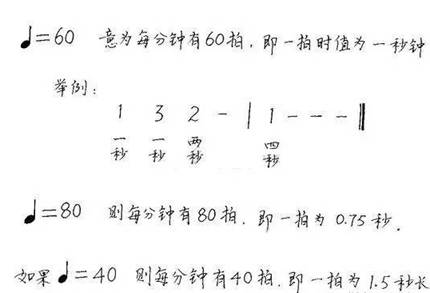 ♩=60 意为每分钟有60拍，即一拍时值为一秒钟
举例：
1 3 2 - | 1 - - - ‖
一秒 一秒 两秒 四秒
♩=80 则每分钟有80拍，即一拍为 0.75 秒．
如果♩=40 则每分钟有40拍，即一拍为 1.5 秒长